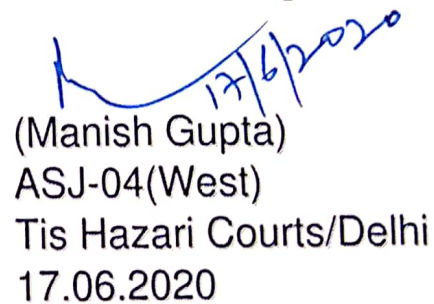 17/6/2020
(Manish Gupta)
ASJ-04(West)
Tis Hazari Courts/Delhi
17.06.2020